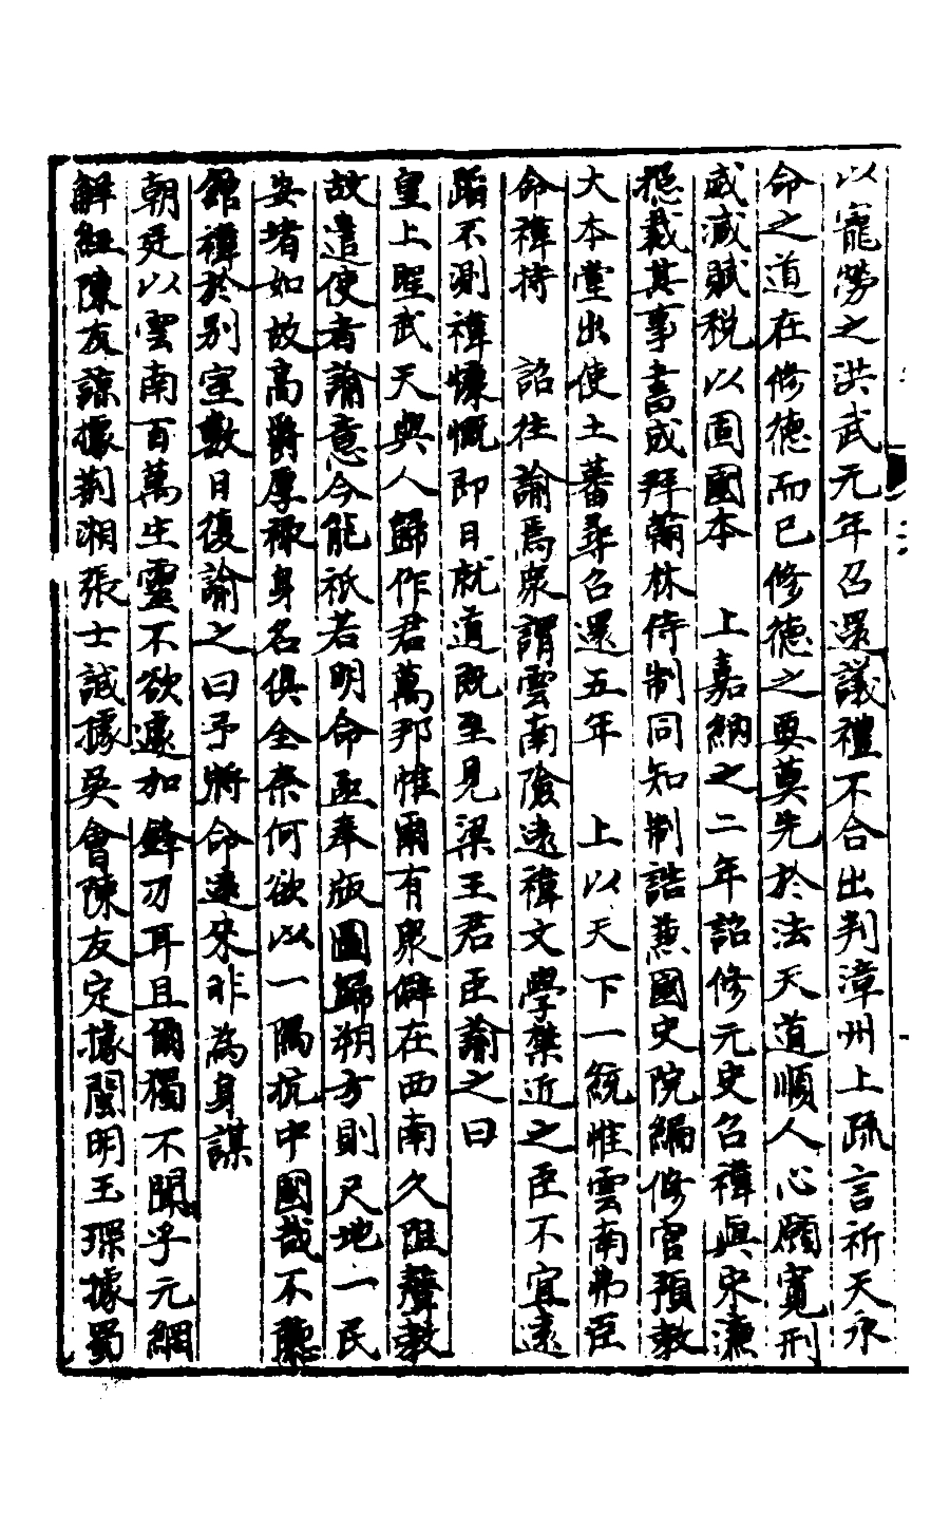 以寵勞之洪武元年召還議禮不合出判漳州上疏言祈天永
命之道在修德而已修德之要莫先於法天道順人心願寬刑
威減賦稅以固國本 上嘉納之二年詔修元史召禕與宋濂
摠裁其事書成拜翰林侍制同知制誥兼國史院編修官預教
大本堂出使土蕃尋召還五年 上以天下一統惟雲南弗臣
命禕持 詔往諭焉眾謂雲南險遠禕文學禁近之臣不宜遠
蹈不測禕慷慨即日就道既至見梁王君臣諭之曰
皇上聖武天與人歸作君萬邦惟爾有眾僻在西南久阻聲教
故遣使者諭意今能祇若明命亟奉版圖歸朔方則尺地一民
安堵如故高爵厚祿身名俱全奈何欲以一隅抗中國哉不聽
館禕於別室數日復諭之曰予將命遠來非為身謀
朝廷以雲南百萬生靈不欲遽加鋒刃耳且爾獨不聞乎元綱
解紐陳友諒據荊湘張士誠據吳會陳友定據閩明玉珍據蜀